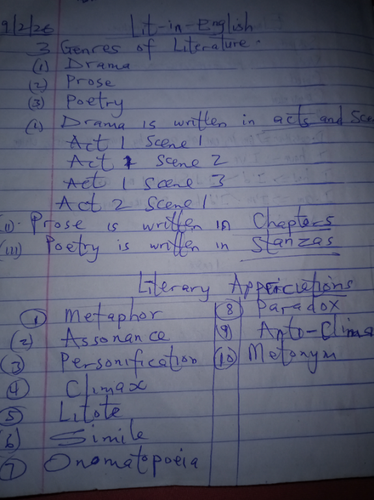 9/2/26 Lit-in-English
3 Genres of Literature.
(1) Drama
(2) Prose
(3) Poetry
(i) Drama is written in acts and Sce
Act 1 Scene 1
Act 1 Scene 2
Act 1 Scene 3
Act 2 Scene 1
(ii) Prose is written in Chapters
(iii) Poetry is written in Stanzas
Literary Appriciations
(1) Metaphor
(2) Assonance
(3) Personification
(4) Climax
(5) Litote
(6) Simile
(7) Onomatopoeia
(8) Paradox
(9) Anti-Clima
(10) Metonym